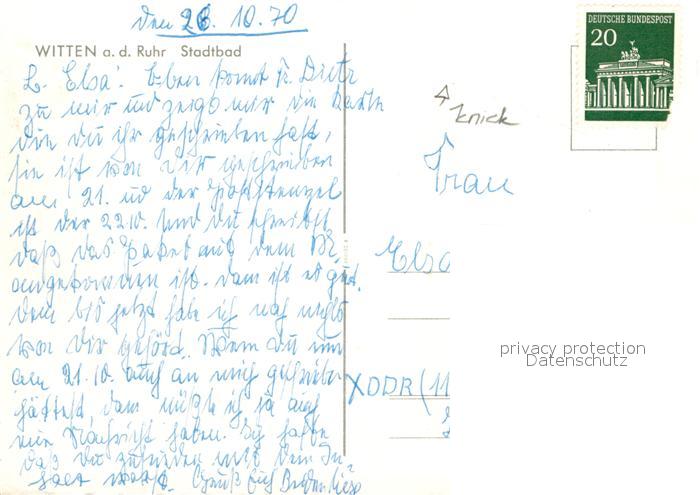 Den 28. 10. 70
WITTEN a. d. Ruhr Stadtbad
L. Elsa! Eben komt Fr. Dietz
zu mir und zeigt mir die Karte
die du ihr geschrieben hast,
sie ist von dir geschrieben
am 21. ud der Poststempel
ist der 22.10. Und du schreibst
daß das Paket auf dem
angekommen ist. dann ist es gut.
denn bis jetzt habe ich noch nichts
von dir gehört. Wenn du nun
am 21.10. auch an mich geschrieben
hättest, dann müßte ich ja auch
eine Nachricht haben. Ich hoffe
daß du zufrieden mit dem In-
halt warst. Gruß Euch
DEUTSCHE BUNDESPOST
20
knick
Frau
Elsa
XDDR (11
privacy protection
Datenschutz